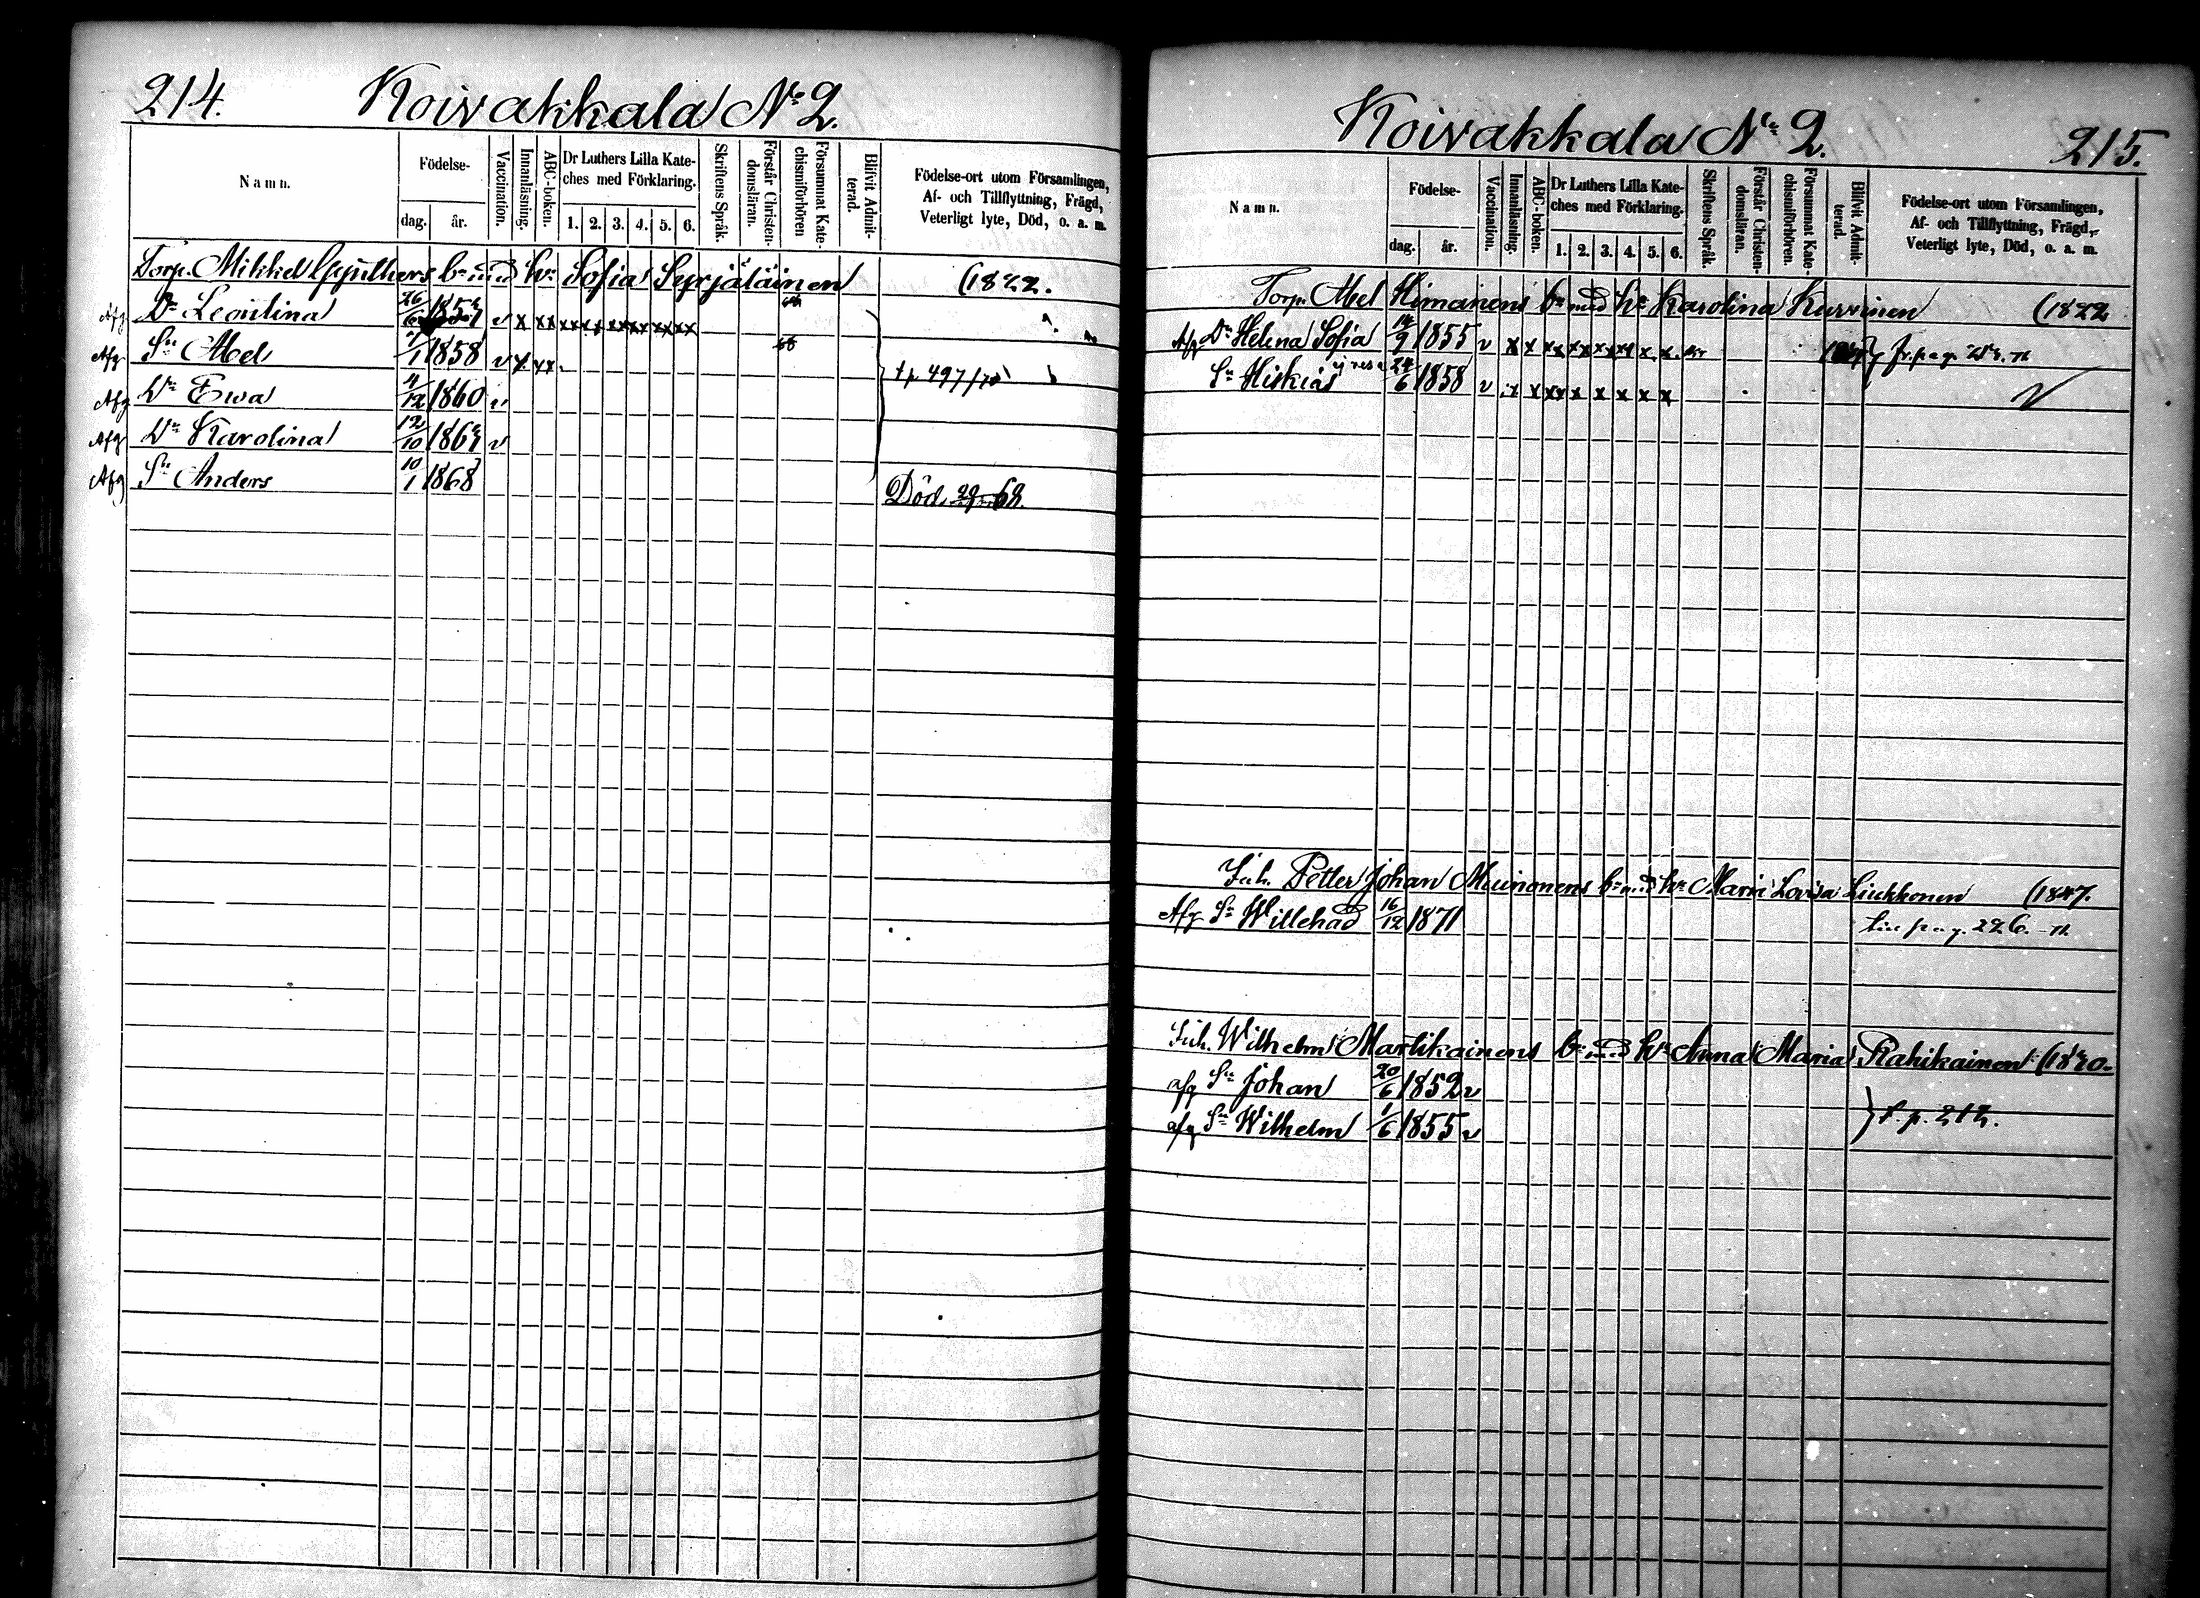 214. Koivakkala N:o 2.
Namn.
Födelse-
dag.
år.
Vaccination.
Innanläsning.
ABC-boken.
Dr Luthers Lilla Kate-
ches med Förklaring.
1. 2. 3. 4. 5. 6.
Skriftens Språk.
Förstår Christen-
domsläran.
Försummat Kate-
chismiförhören
Blifvit Admit-
terad.
Födelse-ort utom Församlingen,
Af- och Tillflyttning, Frägd,
Veterligt lyte, Död, o. a. m.
Torp. Mikkel b:n med h:u Sofia (1822.
Afg Dr Leontina 26/6 1857 v x xx xx xx xx xx xx xx
Afg Sn Abel 1858 v x xx 68
Afg Dr Ewa 4/12 1860 v
t p 497/70
Afg Dr Karolina 12/10 v
Afg Sn Anders 10/1 1868 Död 68.
Koivakkala N:o 2. 215.
Namn.
Födelse-
dag.
år.
Vaccination.
Innanläsning.
ABC-boken.
Dr Luthers Lilla Kate-
ches med Förklaring.
1. 2. 3. 4. 5. 6.
Skriftens Språk.
Förstår Christen-
domsläran.
Försummat Kate-
chismiförhören.
Blifvit Admit-
terad.
Födelse-ort utom Församlingen,
Af- och Tillflyttning, Frägd,
Veterligt lyte, Död, o. a. m.
Torp. Abel Himainens b:n med h:u Karolina Kurvinen (1822
Afg Dr Helena Sofia 14/9 1855 v x x xx xx xx xx x x
Sn Hiskias 24/6 1858 v x x xx x x x x x
Inh. Petter Johan Muinonens b:n med h:u Maria Lovisa Liukkonen (1847.
Afg Sn Willehad 16/12 1871 pag. 226.
Inh. Wilhelm Martikainens b:n med h:u Anna Maria Rahikainen (1820.
afg Sn Johan 20/6 1852 v
afg Sn Wilhelm 1/6 1855 v } t. p. 212.